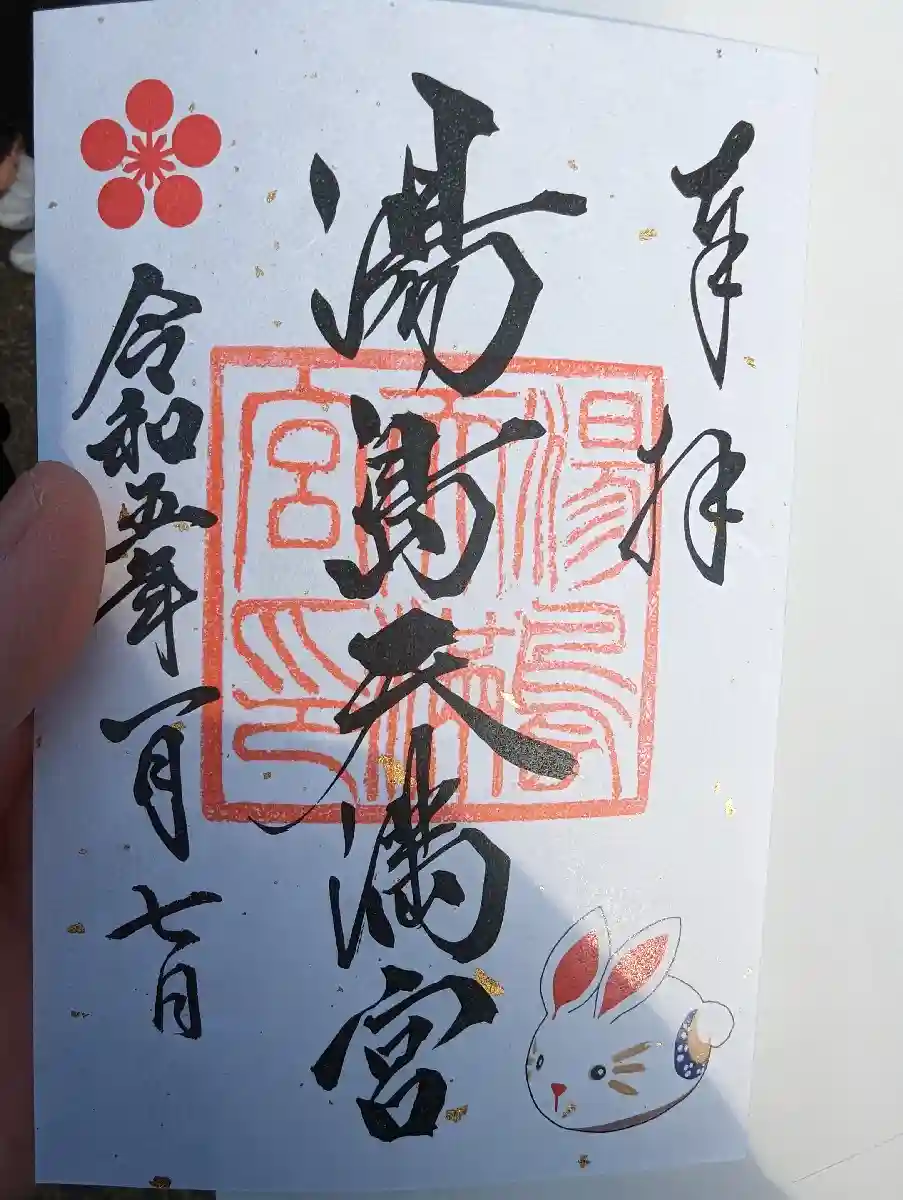 奉拝
湯島天満宮
令和五年一月七日
湯島天満宮印